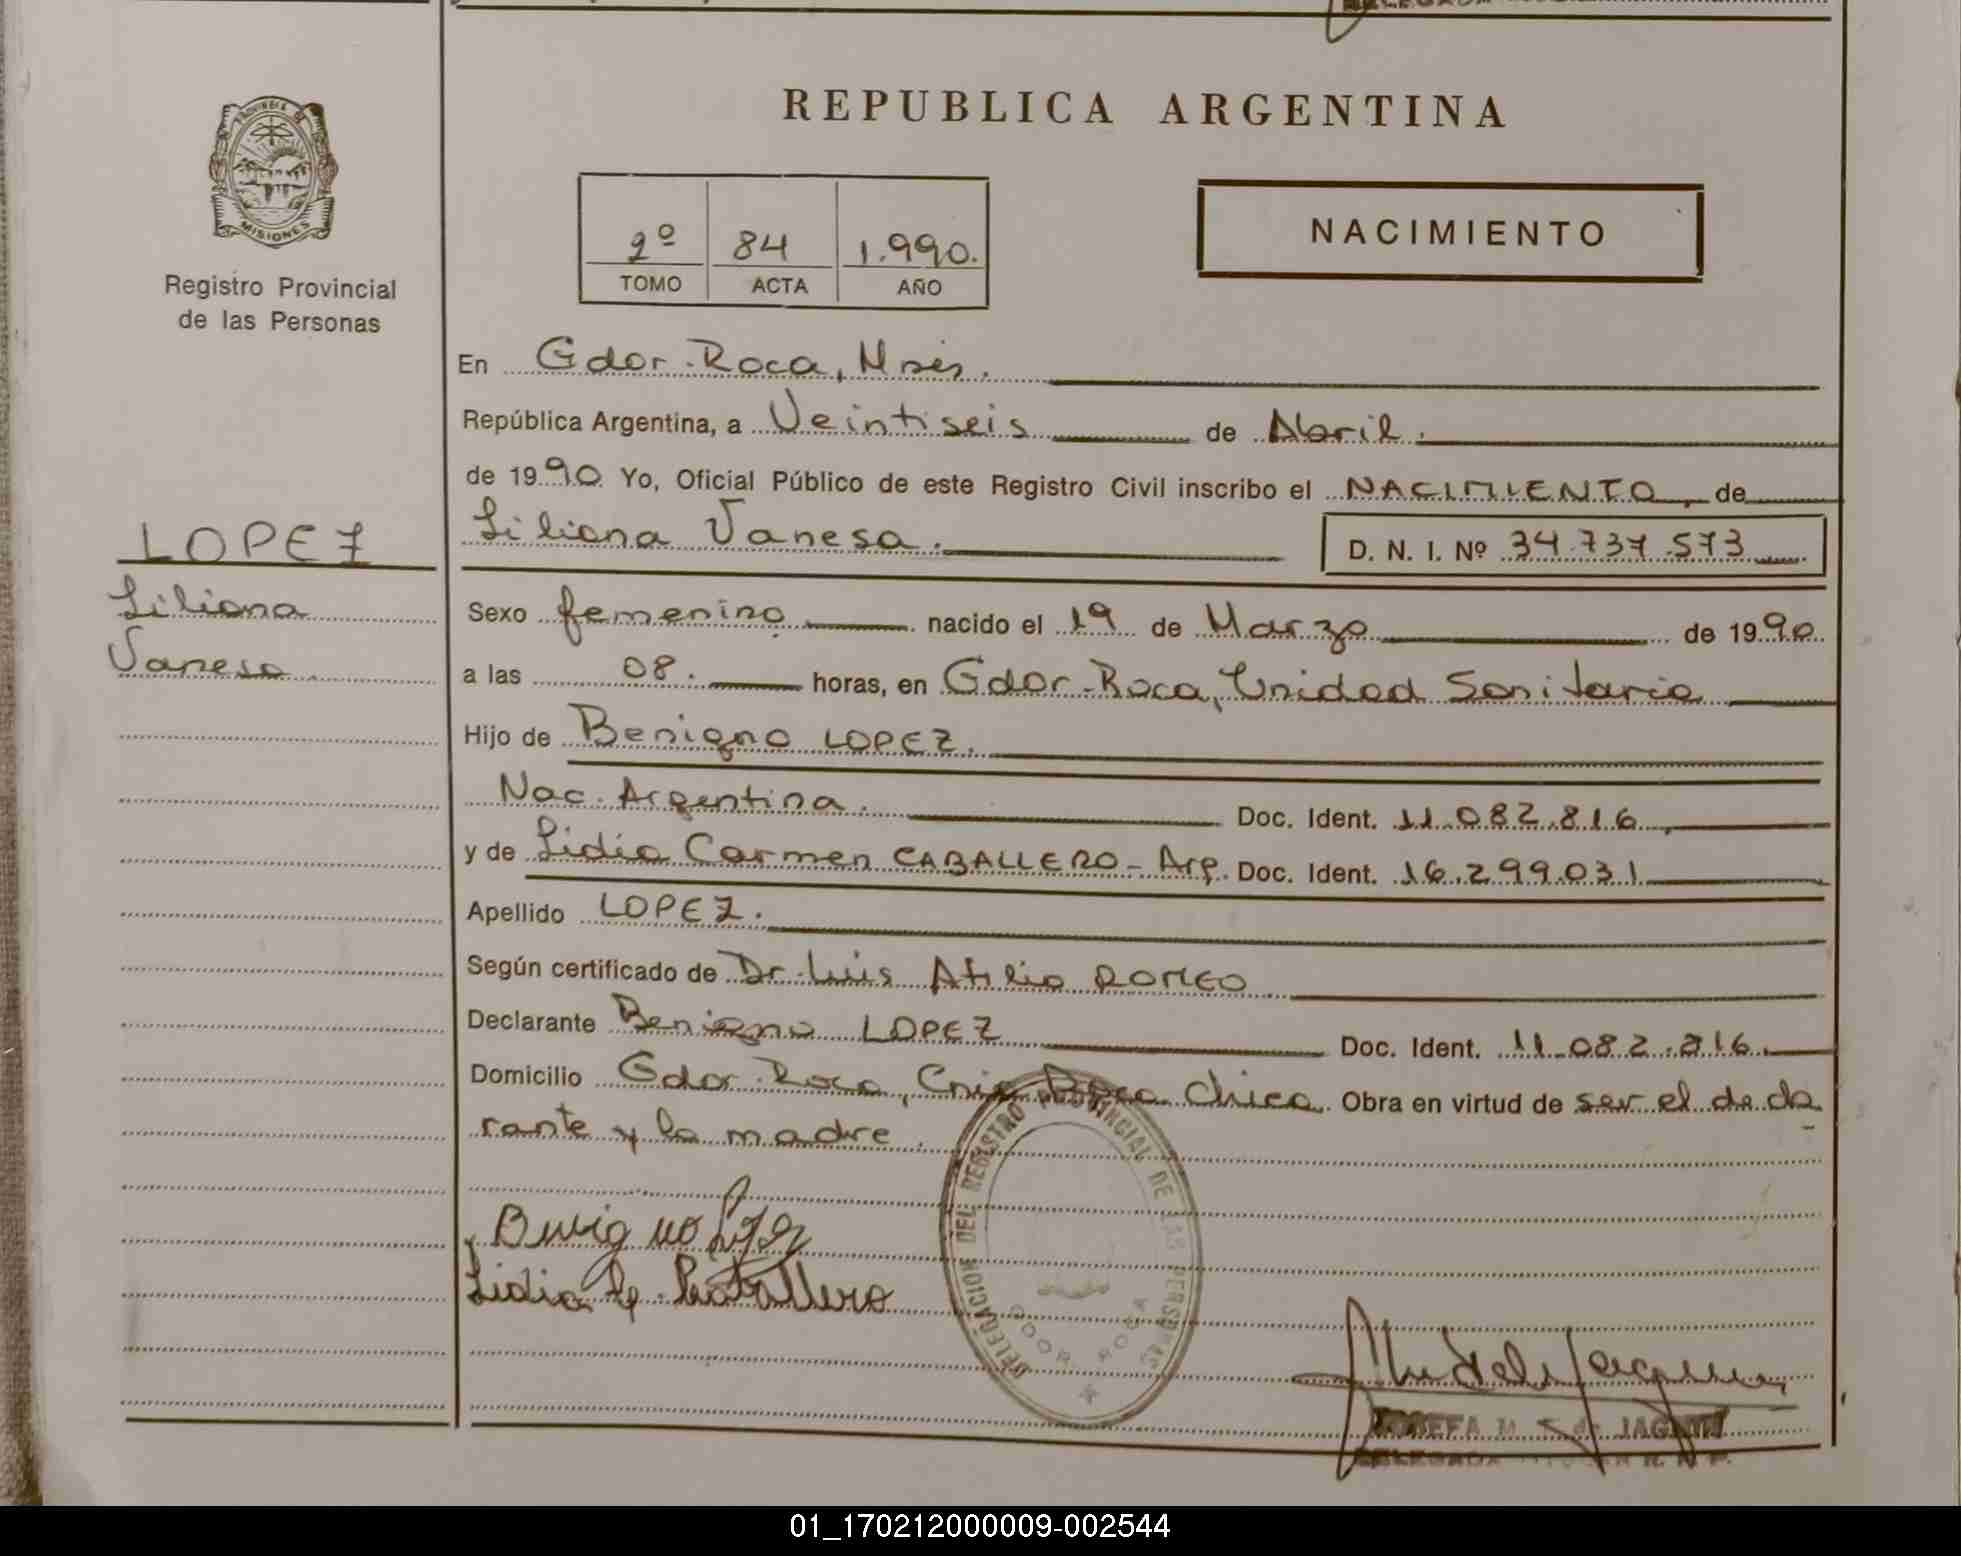 REPUBLICA ARGENTINA
PROVINCIA DE
MISIONES
Registro Provincial
de las Personas
2º 84 1.990.
TOMO ACTA AÑO
NACIMIENTO
En Gdor. Roca, Mnes.
República Argentina, a Veintiseis de Abril.
de 1990 Yo, Oficial Público de este Registro Civil inscribo el NACIMIENTO, de
LOPEZ
Liliana Vanesa.
D. N. I. Nº 34.737.573
Liliana
Vanesa.
Sexo femenino nacido el 19 de Marzo de 1990
a las 08. horas, en Gdor. Roca, Unidad Sanitaria
Hijo de Benigno LOPEZ.
Nac. Argentina. Doc. Ident. 11.082.816.
y de Lidia Carmen CABALLERO - Arg. Doc. Ident. 16.299.031
Apellido LOPEZ.
Según certificado de Dr. Luis Atilio ROMEO
Declarante Benigno LOPEZ Doc. Ident. 11.082.816.
Domicilio Gdor. Roca, Cnia Roca Chica Obra en virtud de ser el decla
rante y la madre.
DELEGACION DEL REGISTRO PROVINCIAL DE LAS PERSONAS
GDOR. ROCA
Benigno Lopez
Lidia C. Caballero
JOSEFA M. de JAGUIN
DELEGADA
01_170212000009-002544